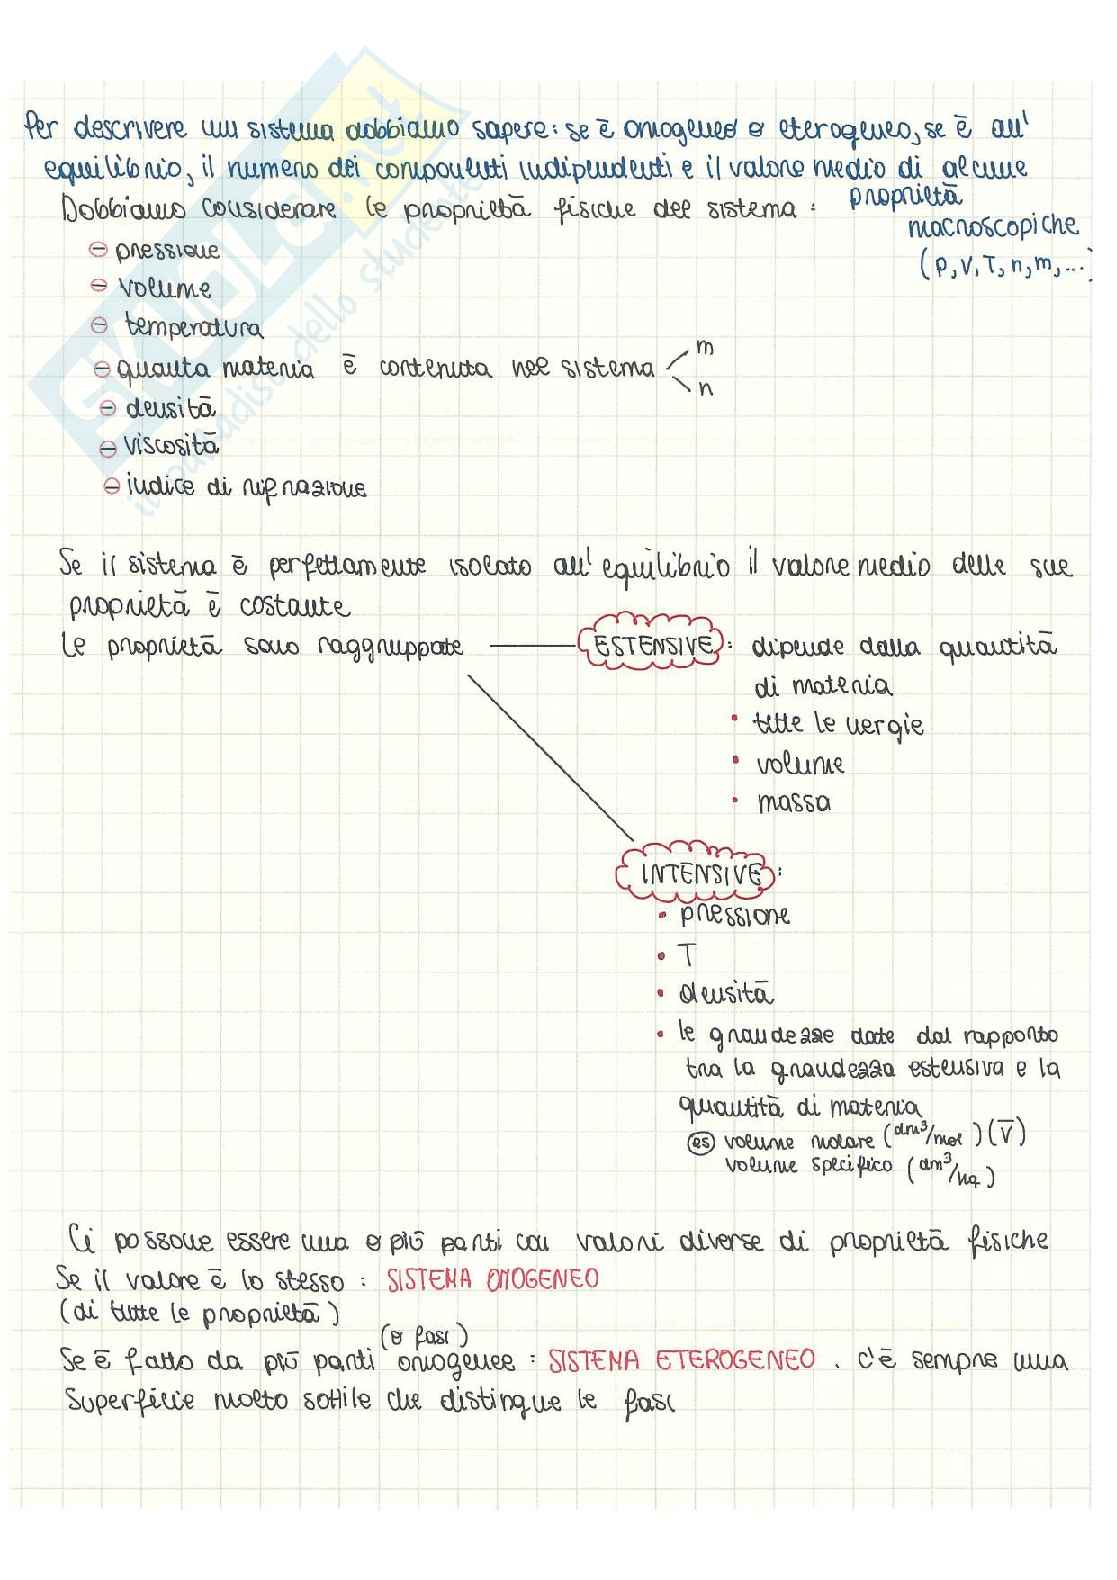 Per descrivere un sistema dobbiamo sapere: se è omogeneo o eterogeneo, se è all'
equilibrio, il numero dei componenti indipendenti e il valore medio di alcune
proprietà
macroscopiche
(p, V, T, n, m, ...)
Dobbiamo considerare le proprietà fisiche del sistema:
⊖ pressione
⊖ volume
⊖ temperatura
⊖ quanta materia è contenuta nel sistema
m
n
⊖ densità
⊖ viscosità
⊖ indice di rifrazione
Se il sistema è perfettamente isolato all'equilibrio il valore medio delle sue
proprietà è costante
Le proprietà sono raggruppate
ESTENSIVE: dipende dalla quantità
di materia
• tutte le energie
• volume
• massa
INTENSIVE:
• pressione
• T
• densità
• le grandezze date dal rapporto
tra la grandezza estensiva e la
quantità di materia
es volume molare (dm³/mol) (V̅)
volume specifico (dm³/kg)
Ci possono essere una o più parti con valori diverse di proprietà fisiche
Se il valore è lo stesso: SISTEMA OMOGENEO
(di tutte le proprietà)
(o fasi)
Se è fatto da più parti omogenee: SISTEMA ETEROGENEO. c'è sempre una
superficie molto sottile che distingue le fasi
SKUOLA.net
il paradiso dello studente